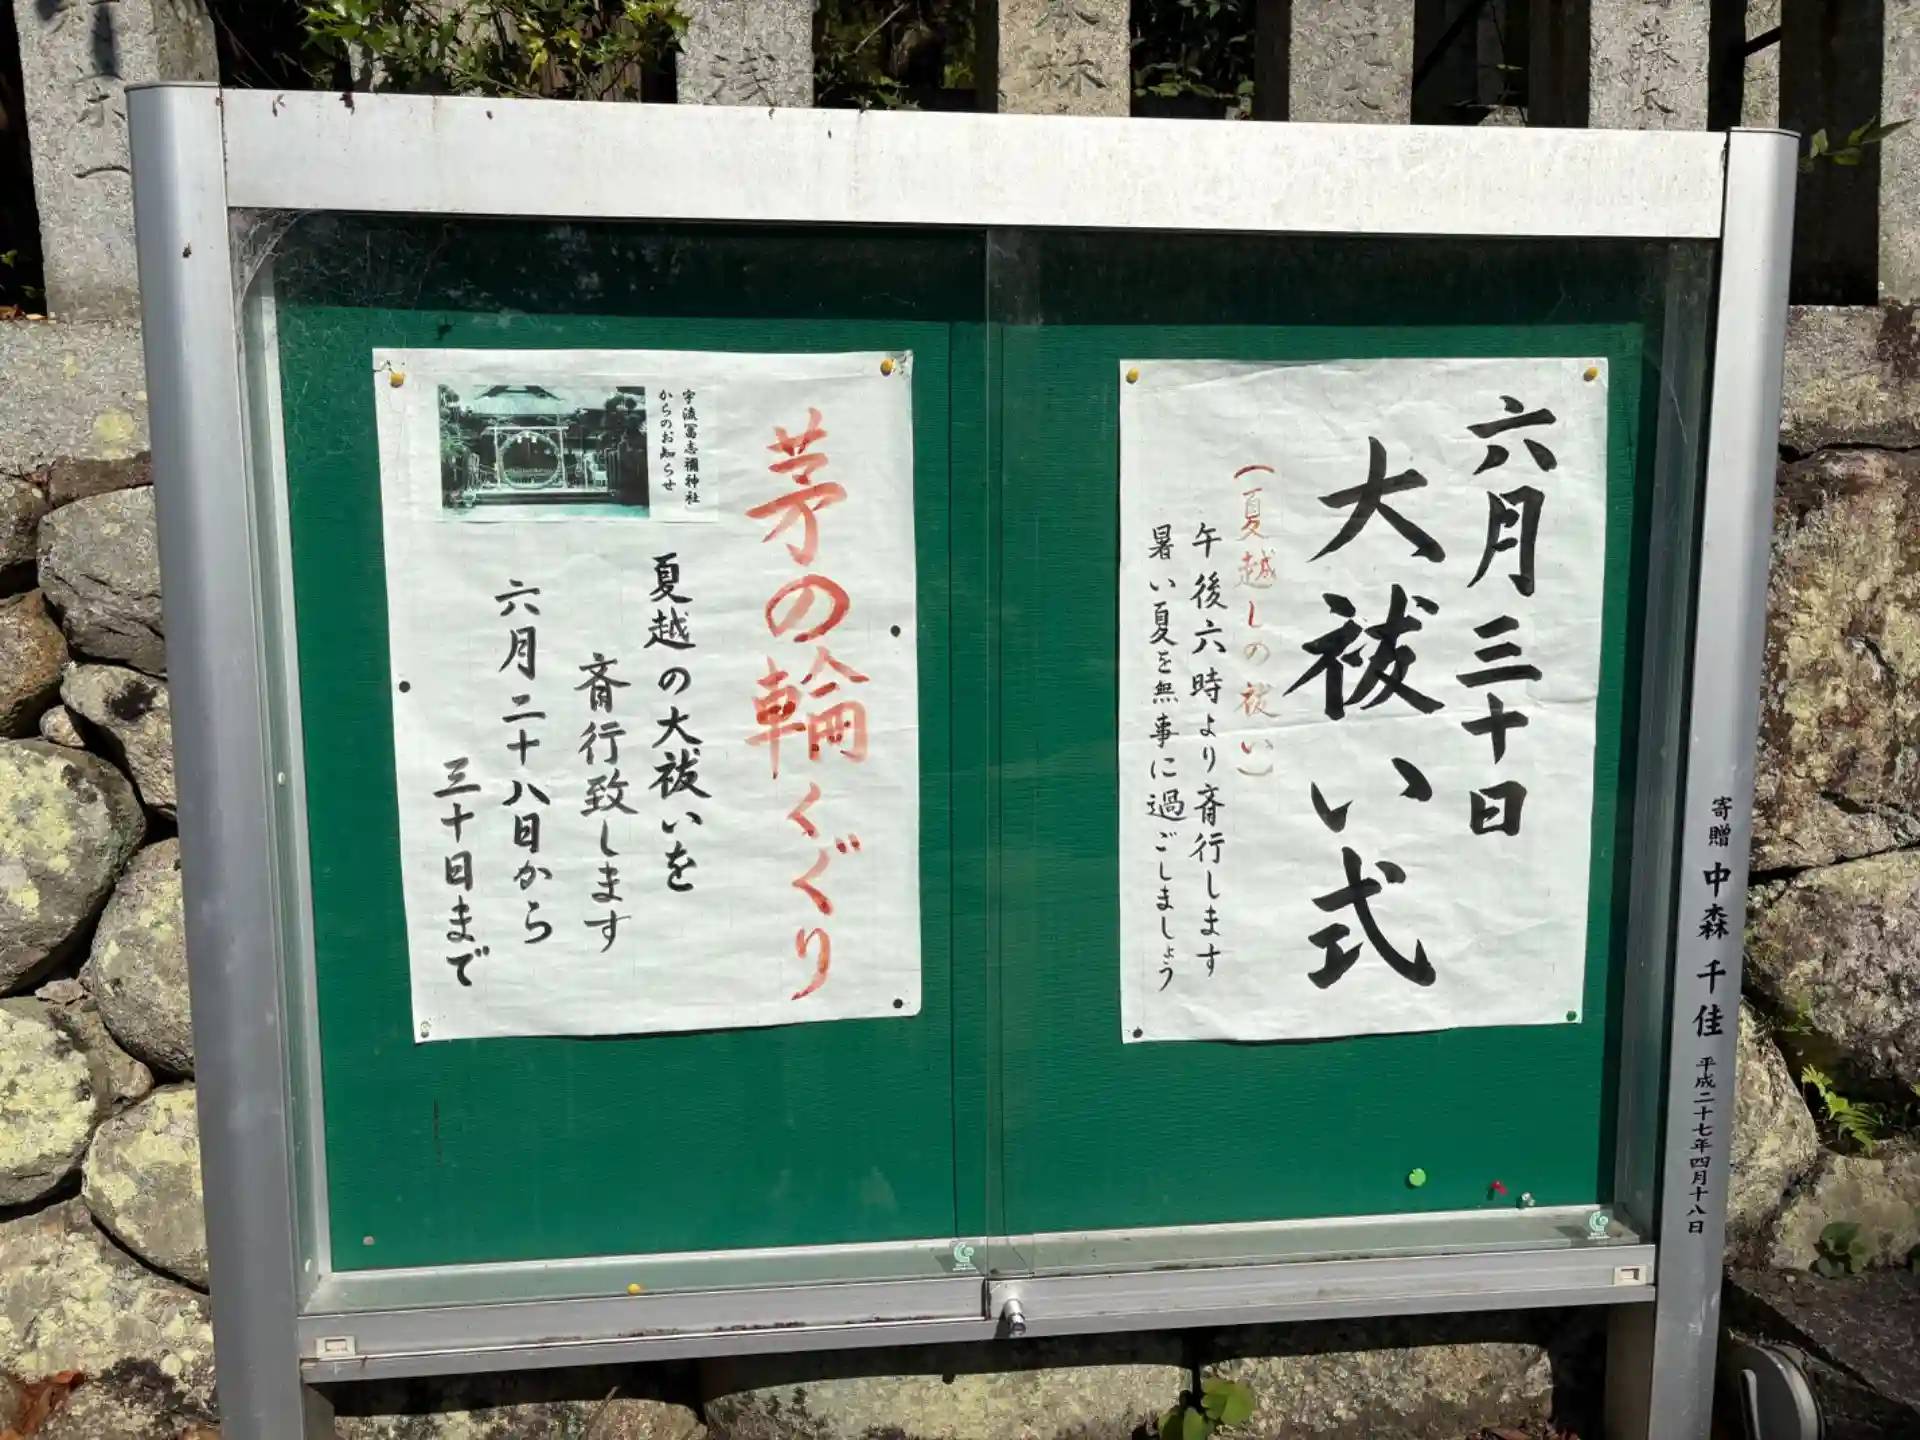 六月三十日
大祓い式
(夏越しの祓い)
午後六時より斎行します
暑い夏を無事に過ごしましょう
茅の輪くぐり
宇流冨志禰神社
からのお知らせ
夏越の大祓いを
斎行致します
六月二十八日から
三十日まで
寄贈 中森千佳 平成二十七年四月十八日
浅
森林
藤本